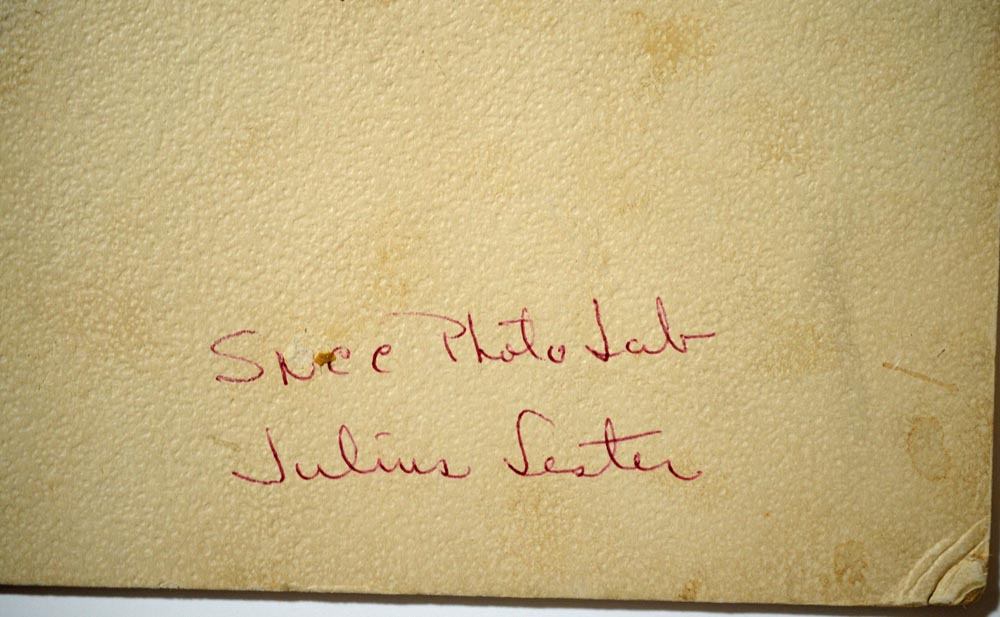 SNCC Photo Lab
Julius Lester